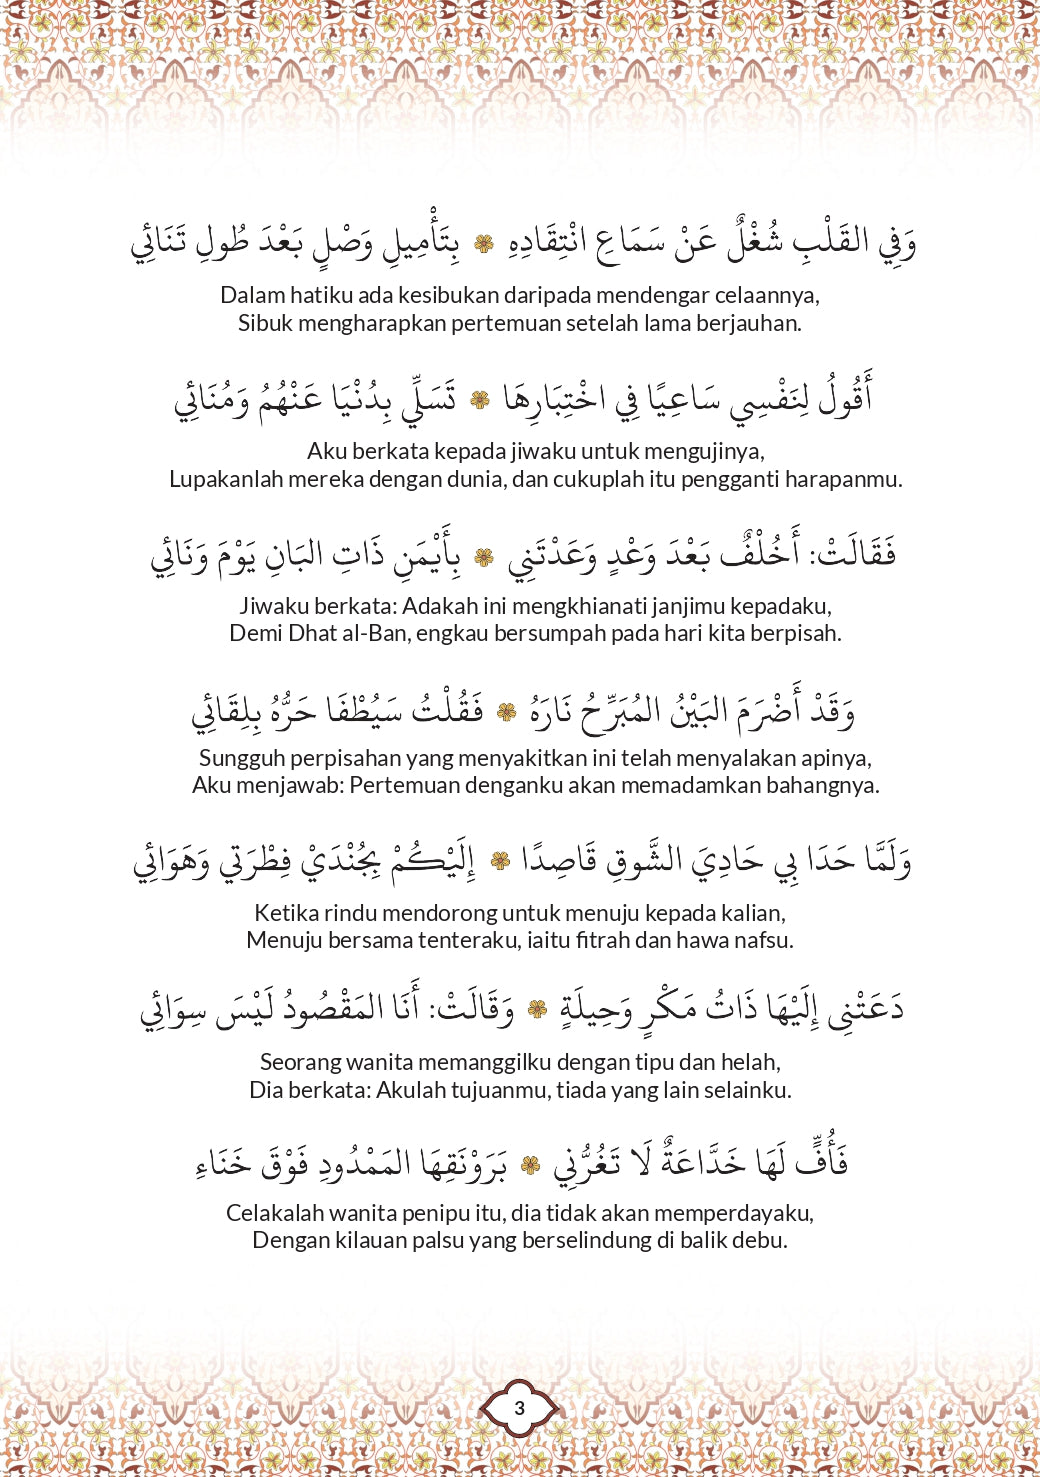 وَفِي القَلْبِ شُغْلٌ عَنْ سَمَاعِ انْتِقَادِهِ بِتَأْمِيلِ وَصْلٍ بَعْدَ طُولِ تَنَائِي
Dalam hatiku ada kesibukan daripada mendengar celaannya,
Sibuk mengharapkan pertemuan setelah lama berjauhan.
أَقُولُ لِنَفْسِي سَاعِيًا فِي اخْتِبَارِهَا تَسَلِّي بِدُنْيَا عَنْهُمُ وَمُنَائِي
Aku berkata kepada jiwaku untuk mengujinya,
Lupakanlah mereka dengan dunia, dan cukuplah itu pengganti harapanmu.
فَقَالَتْ: أَخُلْفٌ بَعْدَ وَعْدٍ وَعَدْتَنِي بِأَيْمَنِ ذَاتِ البَانِ يَوْمَ وَنَائِي
Jiwaku berkata: Adakah ini mengkhianati janjimu kepadaku,
Demi Dhat al-Ban, engkau bersumpah pada hari kita berpisah.
وَقَدْ أَضْرَمَ البَيْنُ المُبَرِّحُ نَارَهُ فَقُلْتُ سَيُطْفَا حَرُّهُ بِلِقَائِي
Sungguh perpisahan yang menyakitkan ini telah menyalakan apinya,
Aku menjawab: Pertemuan denganku akan memadamkan bahangnya.
وَلَمَّا حَدَا بِي حَادِيَ الشَّوقِ قَاصِدًا إِلَيْكُمْ بِجُنْدَيْ فِطْرَتِي وَهَوَائِي
Ketika rindu mendorong untuk menuju kepada kalian,
Menuju bersama tenteraku, iaitu fitrah dan hawa nafsu.
دَعَتْنِى إِلَيْهَا ذَاتُ مَكْرٍ وَحِيلَةٍ وَقَالَتْ: أَنَا المَقْصُودُ لَيْسَ سِوَائِي
Seorang wanita memanggilku dengan tipu dan helah,
Dia berkata: Akulah tujuanmu, tiada yang lain selainku.
فَأُفٍّ لَهَا خَدَّاعَةٌ لَا تَغُرُّنِي بَرَوْنَقِهَا المَمْدُودِ فَوْقَ خَنَاءِ
Celakalah wanita penipu itu, dia tidak akan memperdayaku,
Dengan kilauan palsu yang berselindung di balik debu.
3